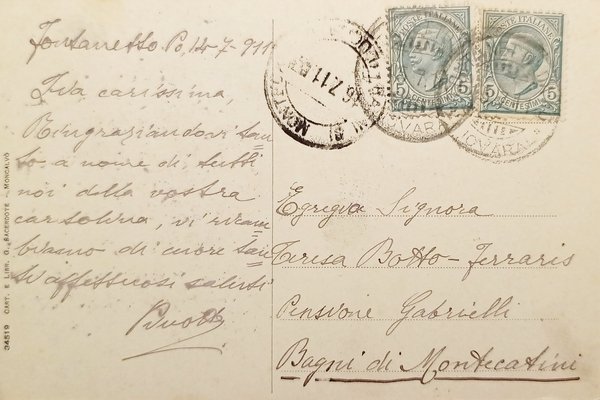 Fontanetto Po, 14-7-911
Zia carissima,
Ringraziandovi tan
to a nome di tutti
noi della vostra
cartolina, vi ricam
biamo di cuore tan
ti affettuosi saluti
POSTE ITALIANE
5 CENTESIMI 5
POSTE ITALIANE
5 CENTESIMI 5
16.7.11
NOVARA
NOVARA
Egregia Signora
Teresa Botto-Ferraris
Pensione Gabrielli
Bagni di Montecatini
34519 CART. E LIBR. G. SACERDOTE - MONCALVO